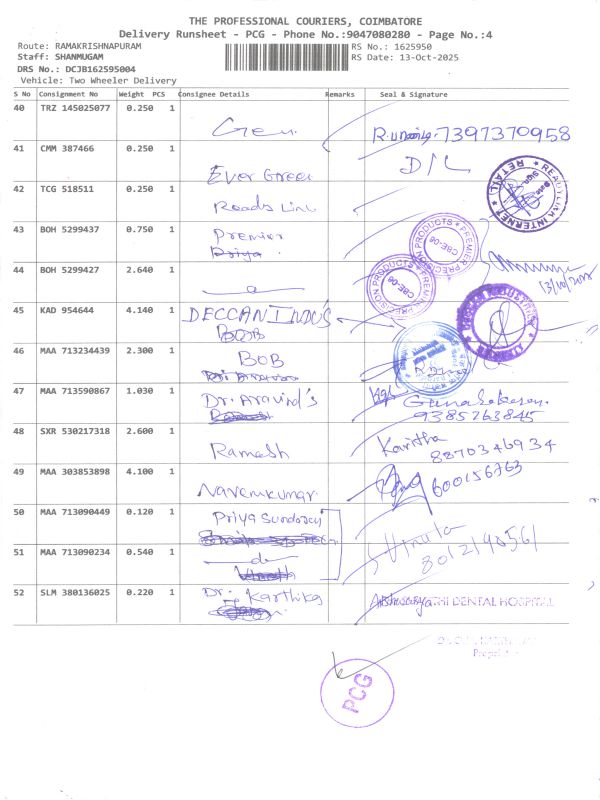 THE PROFESSIONAL COURIERS, COIMBATORE
Delivery Runsheet - PCG - Phone No.:9047080280 - Page No.:4
Route: RAMAKRISHNAPURAM RS No.: 1625950
Staff: SHANMUGAM RS Date: 13-Oct-2025
DRS No.: DCJB162595004
Vehicle: Two Wheeler Delivery
S No Consignment No Weight PCS Consignee Details Remarks Seal & Signature
40 TRZ 145025077 0.250 1
7397370958
41 CMM 387466 0.250 1
Ever Green D/L
42 TCG 518511 0.250 1
Roads Link
READYLINK INTERNET
RETAIL
43 BOH 5299437 0.750 1
Premier
Priya
PREMIER PRECISION PRODUCTS
CBE-06
44 BOH 5299427 2.640 1
13/10/2025
PREMIER PRECISION PRODUCTS
CBE-06
45 KAD 954644 4.140 1
DECCAN INDU'S
BOB
46 MAA 713234439 2.300 1
BOB
47 MAA 713590867 1.030 1
Dr. Aravind's Gunasekaran
Ramesh 9385263845
48 SXR 530217318 2.600 1
Ramesh Karitha
8870346934
49 MAA 303853898 4.100 1
Navernkumar 600156763
50 MAA 713090449 0.120 1
Priya Sundaray
51 MAA 713090234 0.540 1
do
Vinoth
52 SLM 380136025 0.220 1
Dr. Karthika
DENTAL HOSPITAL
PCG